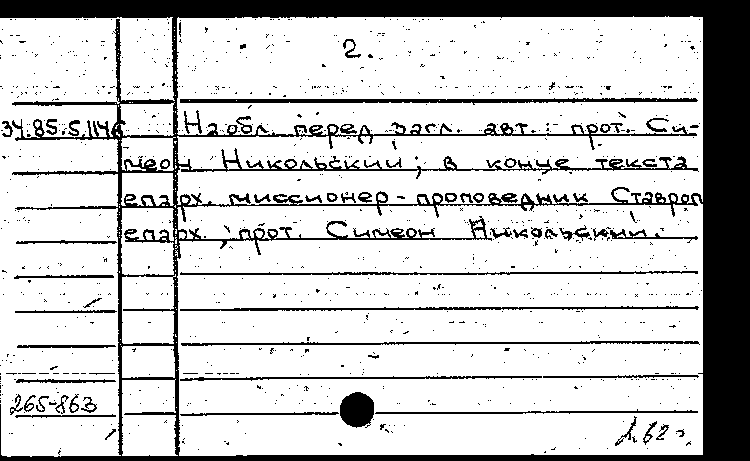 2.
34.85.5.1146 На обл. перед загл. авт.: прот. Си-
меон Никольский; в конце текста
епарх. миссионер-проповедник Ставроп
епарх., прот. Симеон Никольский.
265-863